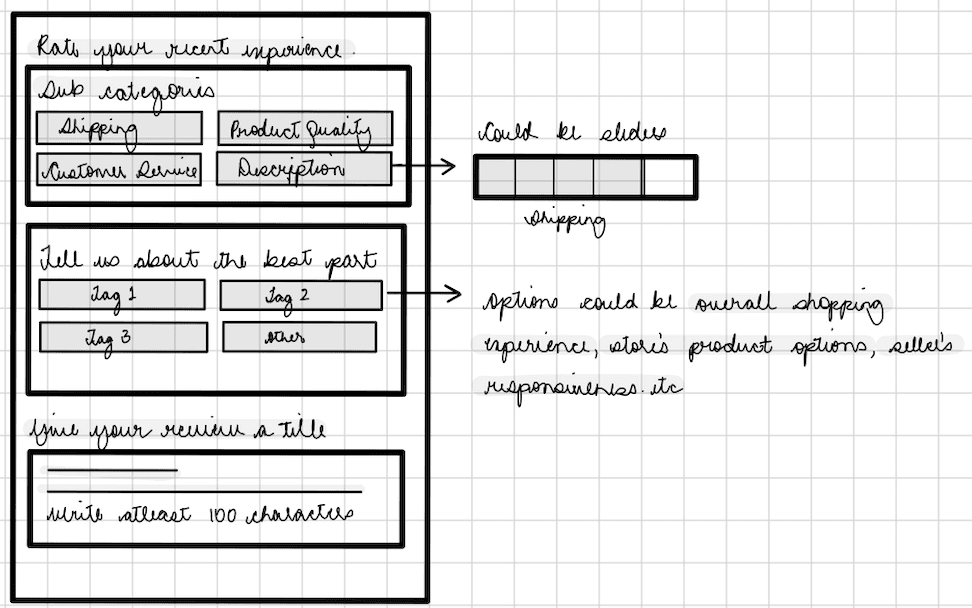 Rate your recent experience.
Sub categories
Shipping
Product Quality
Customer Service
Description
Could be sliders
Shipping
Tell us about the best part
Tag 1
Tag 2
Tag 3
other
options could be overall shopping
experience, store's product options, seller's
responsiveness. etc
Give your review a title
write atleast 100 characters